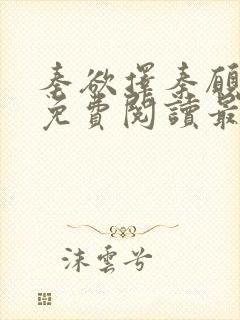 秦欲擇秦願
免費閱讀最
沫雲兮